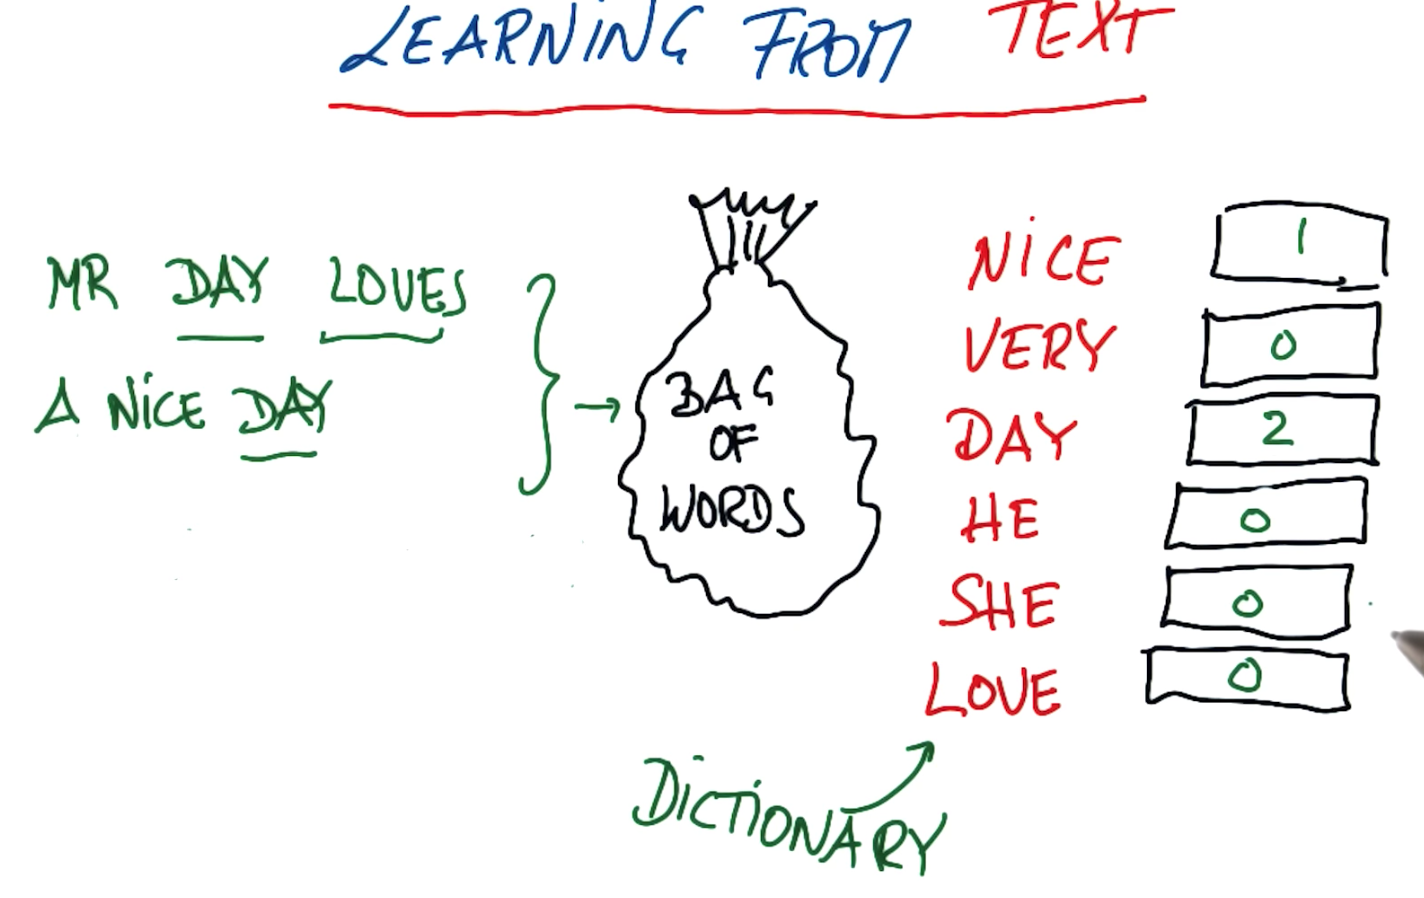 LEARNING FROM TEXT
MR DAY LOVES
A NICE DAY
BAG
OF
WORDS
NICE 1
VERY 0
DAY 2
HE 0
SHE 0
LOVE 0
DICTIONARY